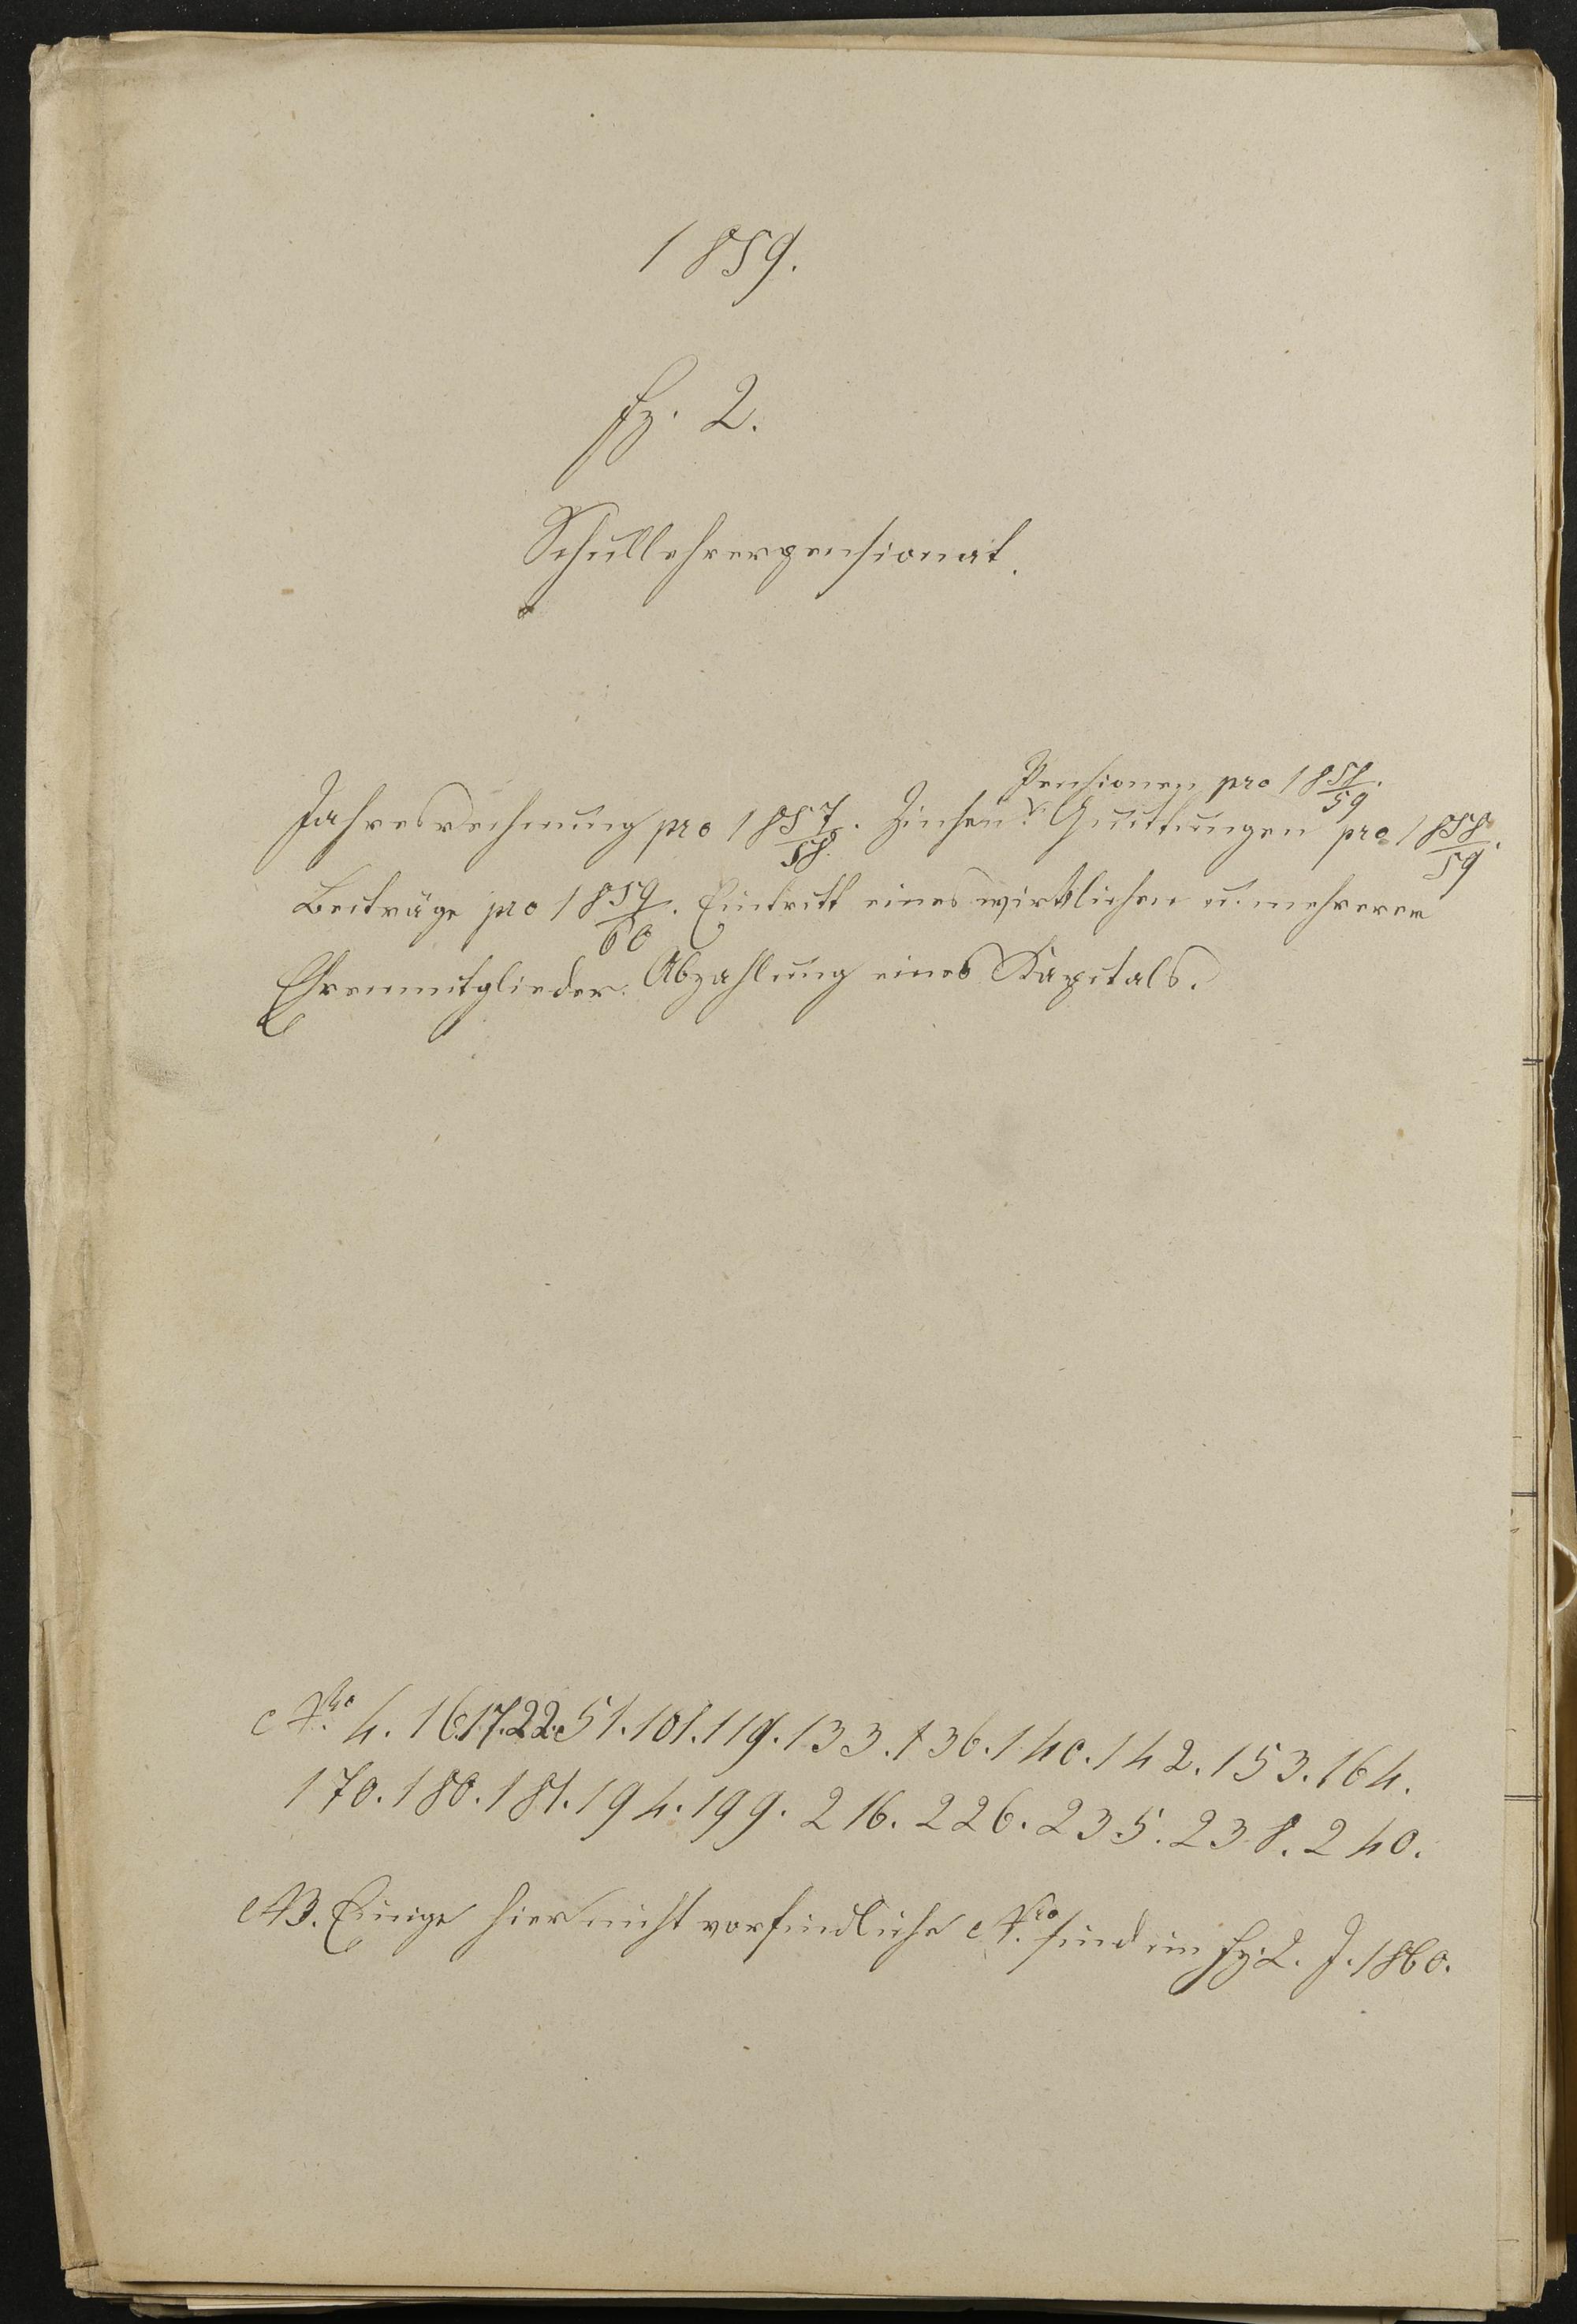 1859.
fz. 2.
Schullehrerpensionat.
Pensionen pro 1858/59.
Jahresrechnung pro 1857/58. Zinsen. Quittungen pro 1858/59.
Beiträge pro 1859/60. Eintritt eines wirklichen u. mehrerer
Ehrenmitglieder. Abzahlung eines Kapitals.
Nro 4. 16. 17. 22. 51. 101. 119. 133. 136. 140. 142. 153. 164.
170. 180. 181. 194. 199. 216. 226. 235. 238. 240.
NB. Einige hier nicht vorfindliche Nro sind im fz. 2. J. 1860.